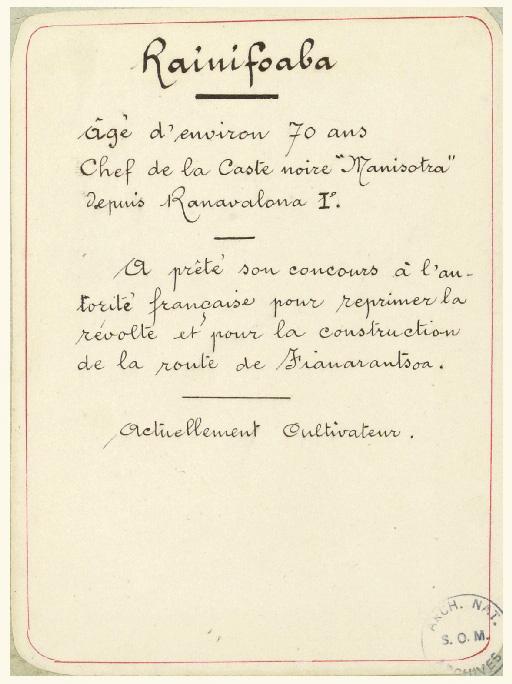 Rainifoaba
Âgé d'environ 70 ans
Chef de la Caste noire "Manisotra"
depuis Ranavalona Iº.
A prêté son concours à l'au-
torité française pour reprimer la
révolte et pour la construction
de la route de Fianarantsoa.
Actuellement Cultivateur.
ARCH. NAT.
S.O.M.
ARCHIVES